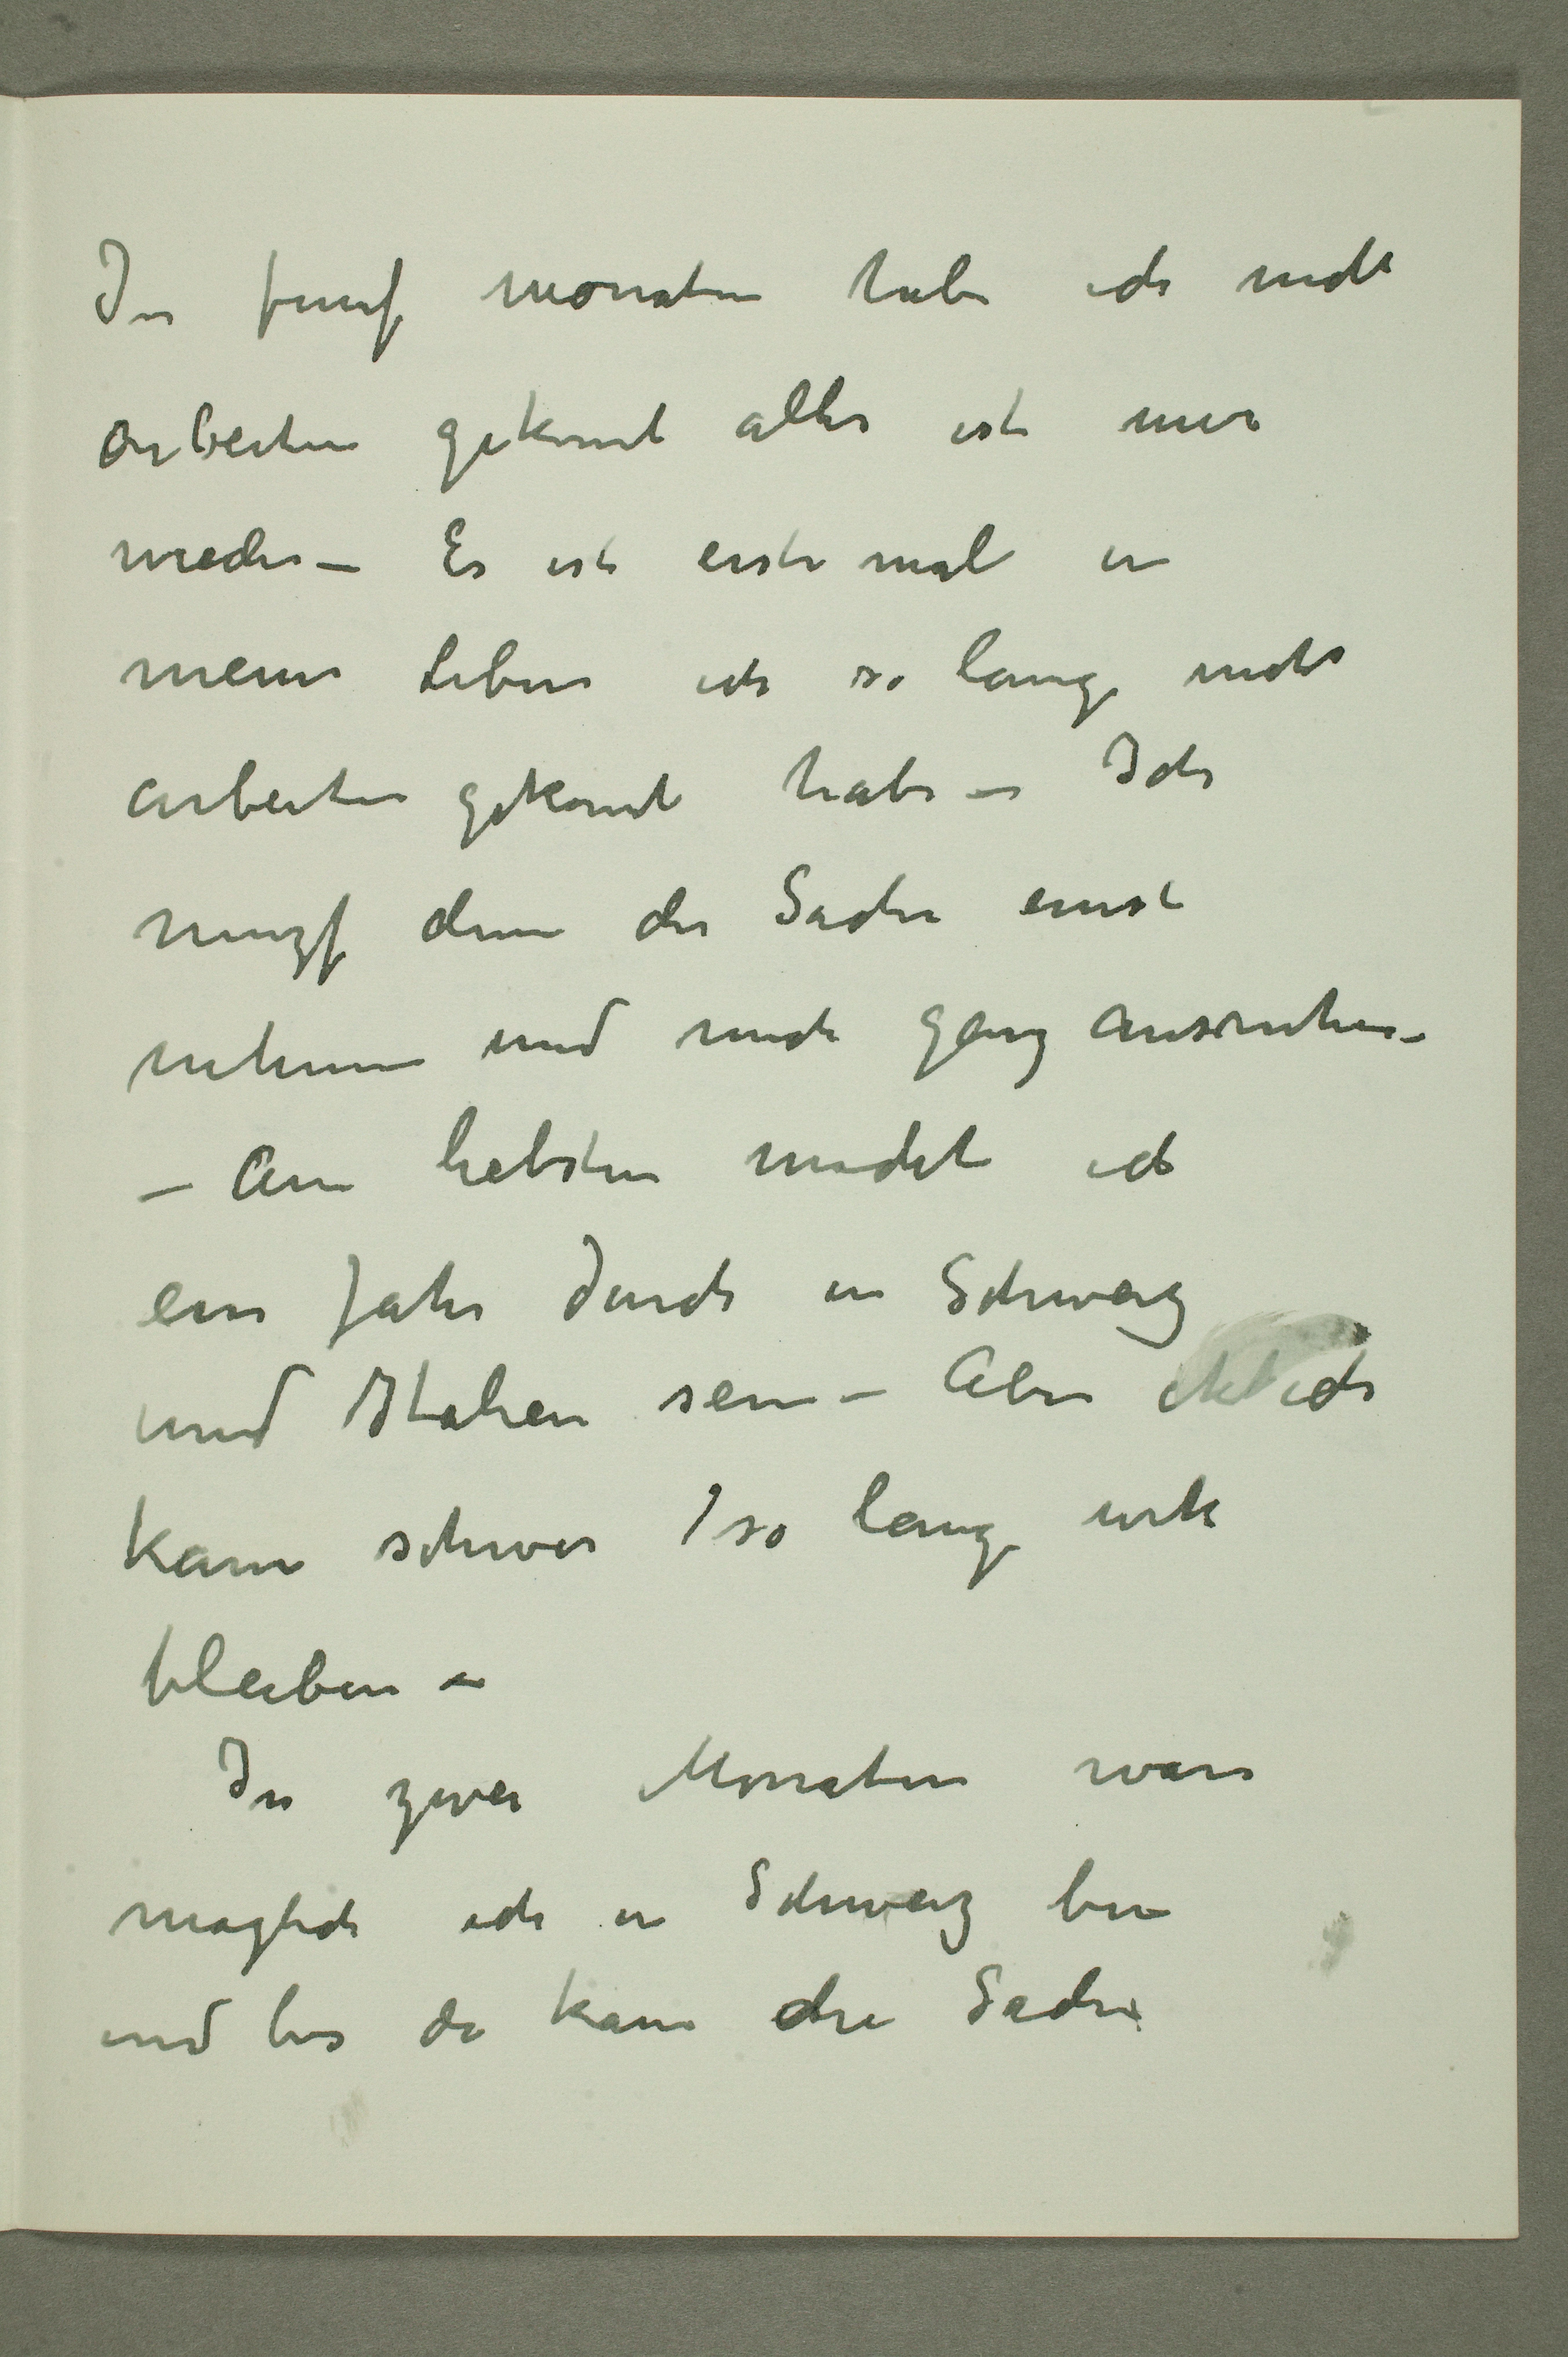 In fünf monaten habe ich nicht
arbeiten gekonnt alles ist mir
wieder – Es ist erste mal in
meine Leben ich so lange nicht
arbeiten gekonnt habe – Ich
muzf denn die Sache ernst
nehmen und mich ganz ausruhen –
– Am liebsten möcht ich
ein Jahr durch in Schweiz
und Italien sein – Aber ich
kann schwer so lange
bleiben –
In zwei Monaten war
moglich ich in Schweiz bin
und bis da kann die Sache